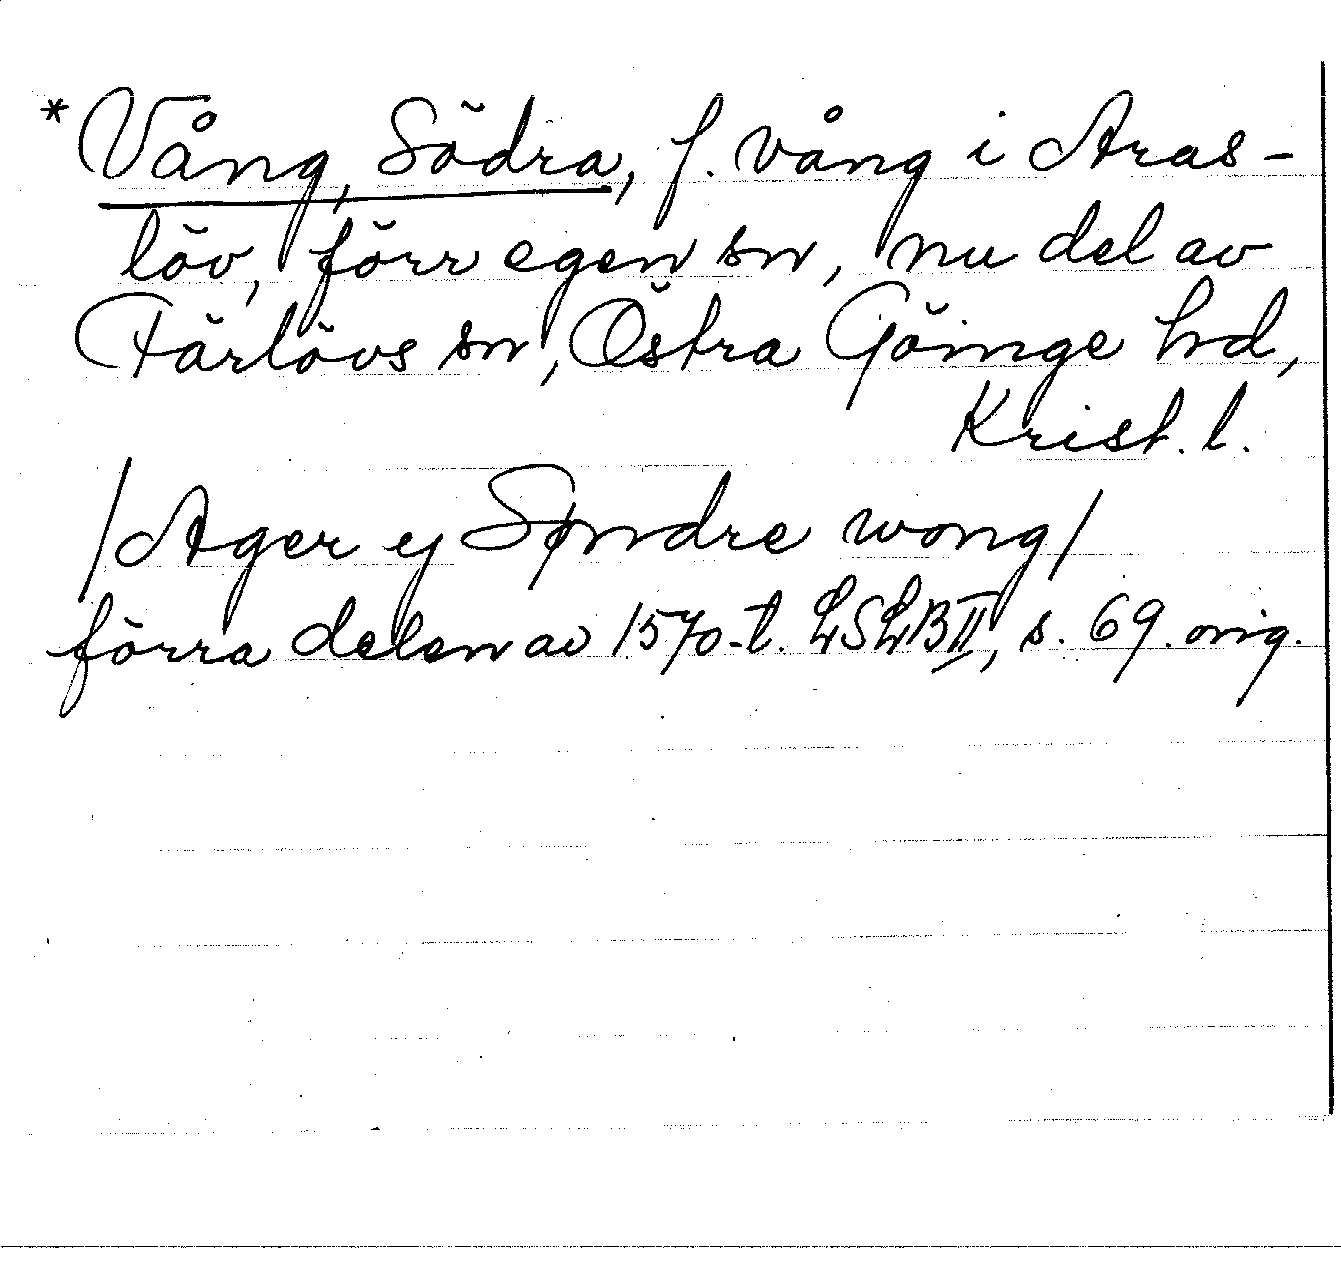 * Vång, Södra, f. vång i Aras-
löv, förr egen sn, nu del av
Färlövs sn, Östra Göinge hd,
Krist. l.
/Ager ey Søndre wong/
förra delen av 1570-t. LSLB II, s. 69. orig.